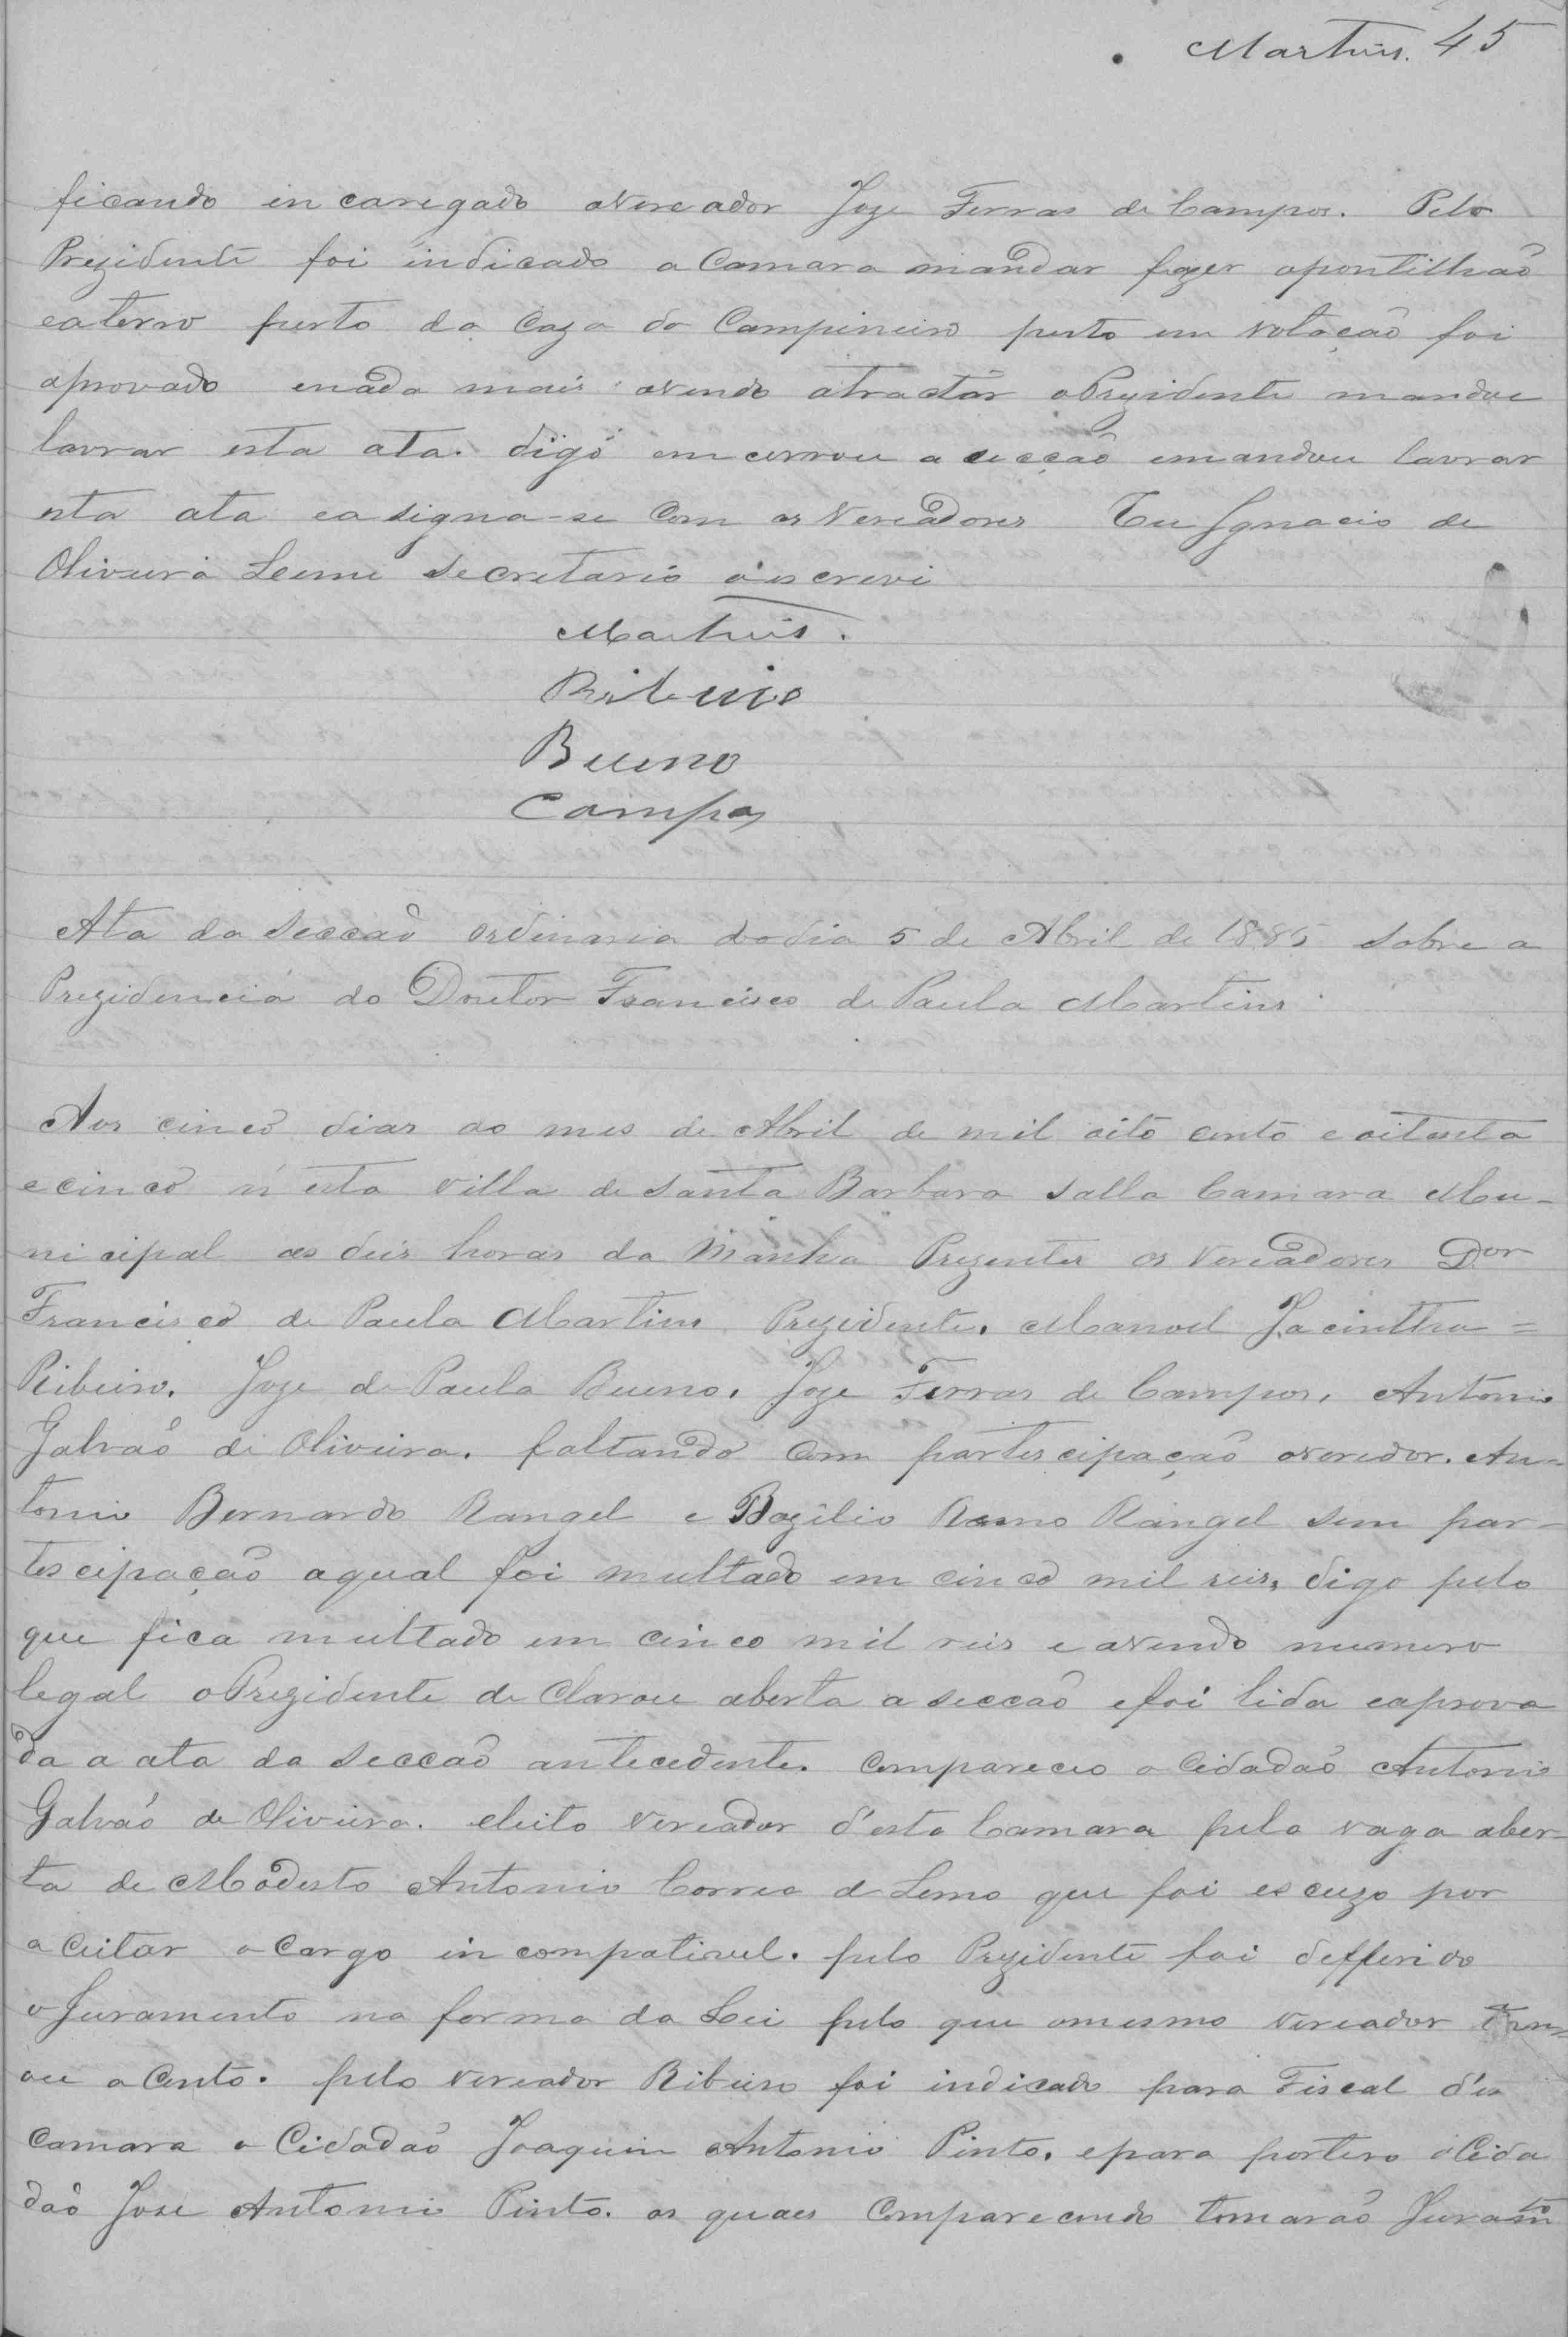 Martins. 45
ficando in caregado overeador Joze Ferras de Campos. Pelo
Prezidente foi indicado a Camara mandar fazer opontilhaõ
eaterro perto da Caza do Campineiro posto em votaçaõ foi
aprovado enada mais avendo atractar oPrezidente mandou
lavrar esta ata. digo emcerrou a secçaõ emandou lavrar
esta ata easigna-se Com os Vereadores Eu Ignacio de
Oliveira Leme secretario o escrevi
Martins.
Ribeiro
Bueno
Campos
Ata da Seccaõ Ordinaria do dia 5 de Abril de 1885 sobre a
Prezidencia do Doutor Francisco de Paula Martins.
Aos cinco dias do mes de Abril de mil oito cento e oitenta
ecinco n'esta villa de Santa Barbara salla Camara Mu-
nicipal as deis horas da Manha Prezentes os Vereadores Dor
Francisco de Paula Martins Prezidente. Manoel Jacintho =
Ribeiro. Joze de Paula Bueno. Joze Ferras de Campos, Antonio
Galvaõ de Oliveira. faltando Com partescipaçaõ overedor. An=
tonio Bernardo Rangel e Bazilio Ramo Rangel sem par-
tescipaçaõ aqual foi multado em cinco mil reis, digo pelo
que fica multado em cinco mil reis e avendo numero
legal oPrezidente de Clarou aberta a seccaõ efoi lida eaprova
da a ata da seccaõ antecedente. Compareceo o Cidadaõ Antonio
Galvaõ de Oliveira. eleito Vereador d'esta Camara pela vaga aber-
ta de Modesto Antonio Correa de Lemo que foi escuzo por
aCeitar o Cargo in compativel. pelo Prezidente foi defferido
o Juramento na forma da Lei pelo que omesmo vereador tom=
ou aCento. pelo vereador Ribeiro foi indicado para Fiscal d'es
Camara o Cidadaõ Joaquim Antonio Pinto. epara porteiro oCida
daõ Jose Antonio Pinto. os quaes Comparecendo tomaraõ Juramto